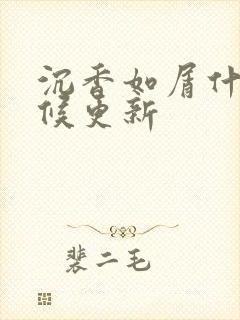 沉香如屑什
候更新
裴二毛